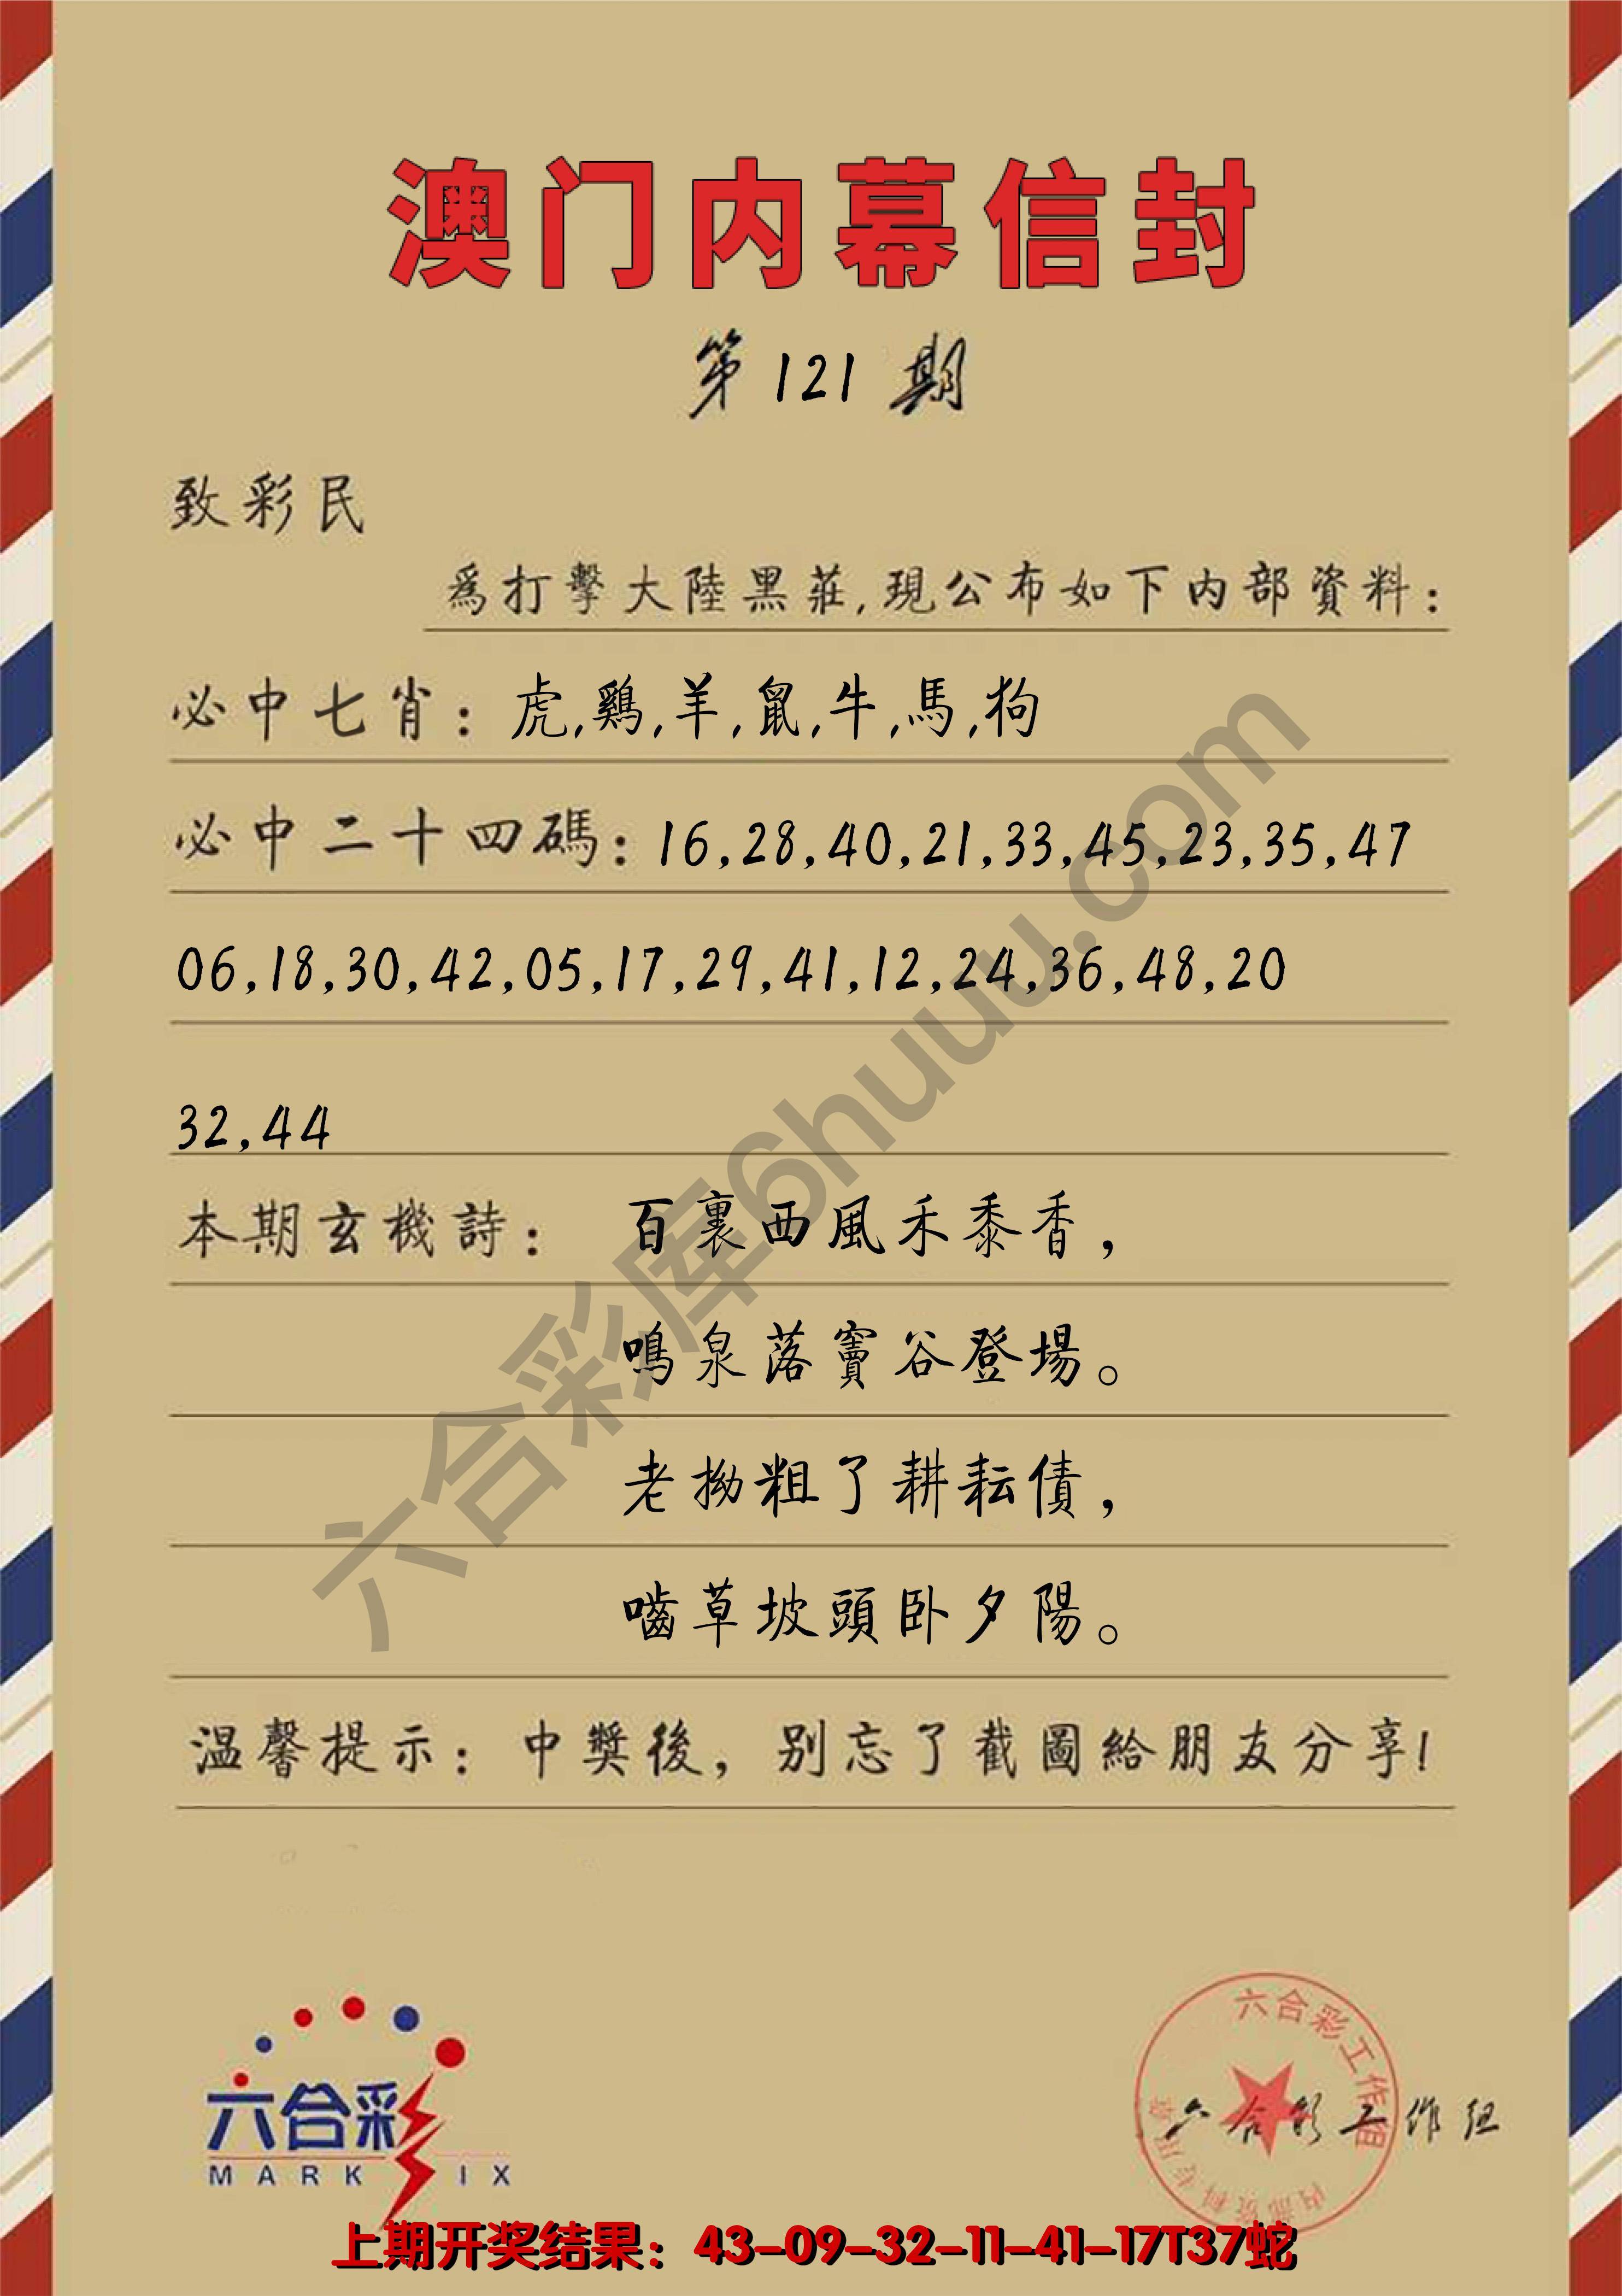 澳门内幕信封
第121期
致彩民
爲打擊大陸黑莊,現公布如下内部資料:
必中七肖:虎,鷄,羊,鼠,牛,馬,狗
必中二十四碼:16,28,40,21,33,45,23,35,47
06,18,30,42,05,17,29,41,12,24,36,48,20
32,44
本期玄機詩: 百裏西風禾黍香,
鳴泉落竇谷登場。
老拗粗了耕耘債,
嚙草坡頭卧夕陽。
温馨提示:中獎後,别忘了截圖給朋友分享!
六合彩库6huuu.com
六合彩
MARK SIX
六合彩工作组
内部资料专用章
六合彩工作组
上期开奖结果:43-09-32-11-41-17T37蛇